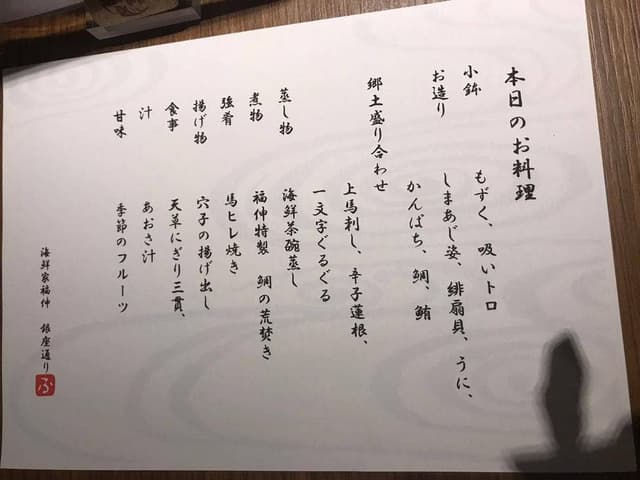 本日のお料理
小鉢　もずく、吸いトロ
お造り　しまあじ姿、緋扇貝、うに、
かんぱち、鯛、鮪
郷土盛り合わせ　上馬刺し、辛子蓮根、
一文字ぐるぐる
蒸し物　海鮮茶碗蒸し
煮物　福伸特製　鯛の荒焚き
強肴　馬ヒレ焼き
揚げ物　穴子の揚げ出し
食事　天草にぎり三貫、
汁　あおさ汁
甘味　季節のフルーツ
海鮮家福伸　銀座通り
ふ